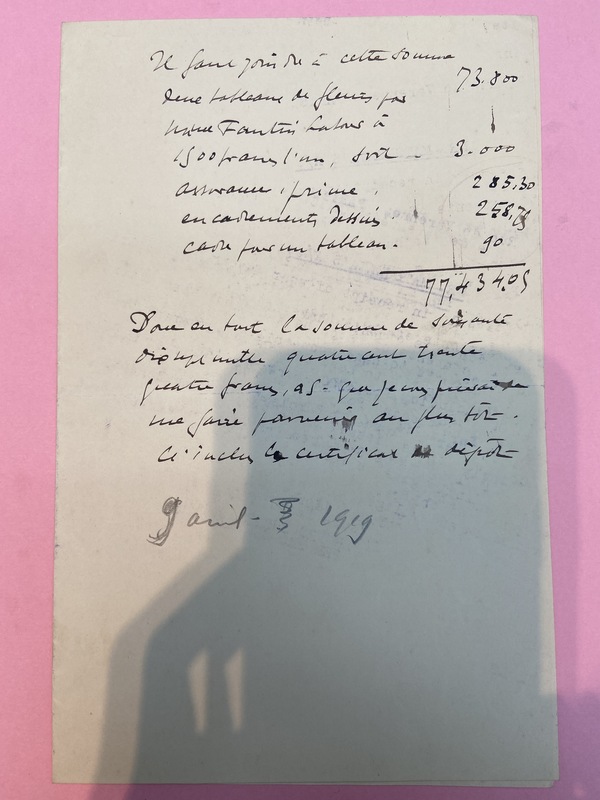 Il faut joindre à cette somme 73.800
Deux tableaux de fleurs par
Mme Fantin Latour à
1500 francs l'un, soit - 3.000
assurance, prime. 285,30
encadrements dessins 258,75
cadre pour un tableau - 90
77,434,05
Donc en tout la somme de soixante
dix sept mille quatre cent trente
quatre francs, 05 - que je vous prierai de
me faire parvenir au plus tôt.
Ci inclus le certificat de dépôt
9 avril - 1919